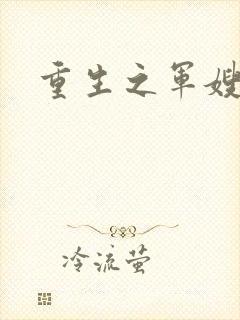 重生之军嫂
冷流萤